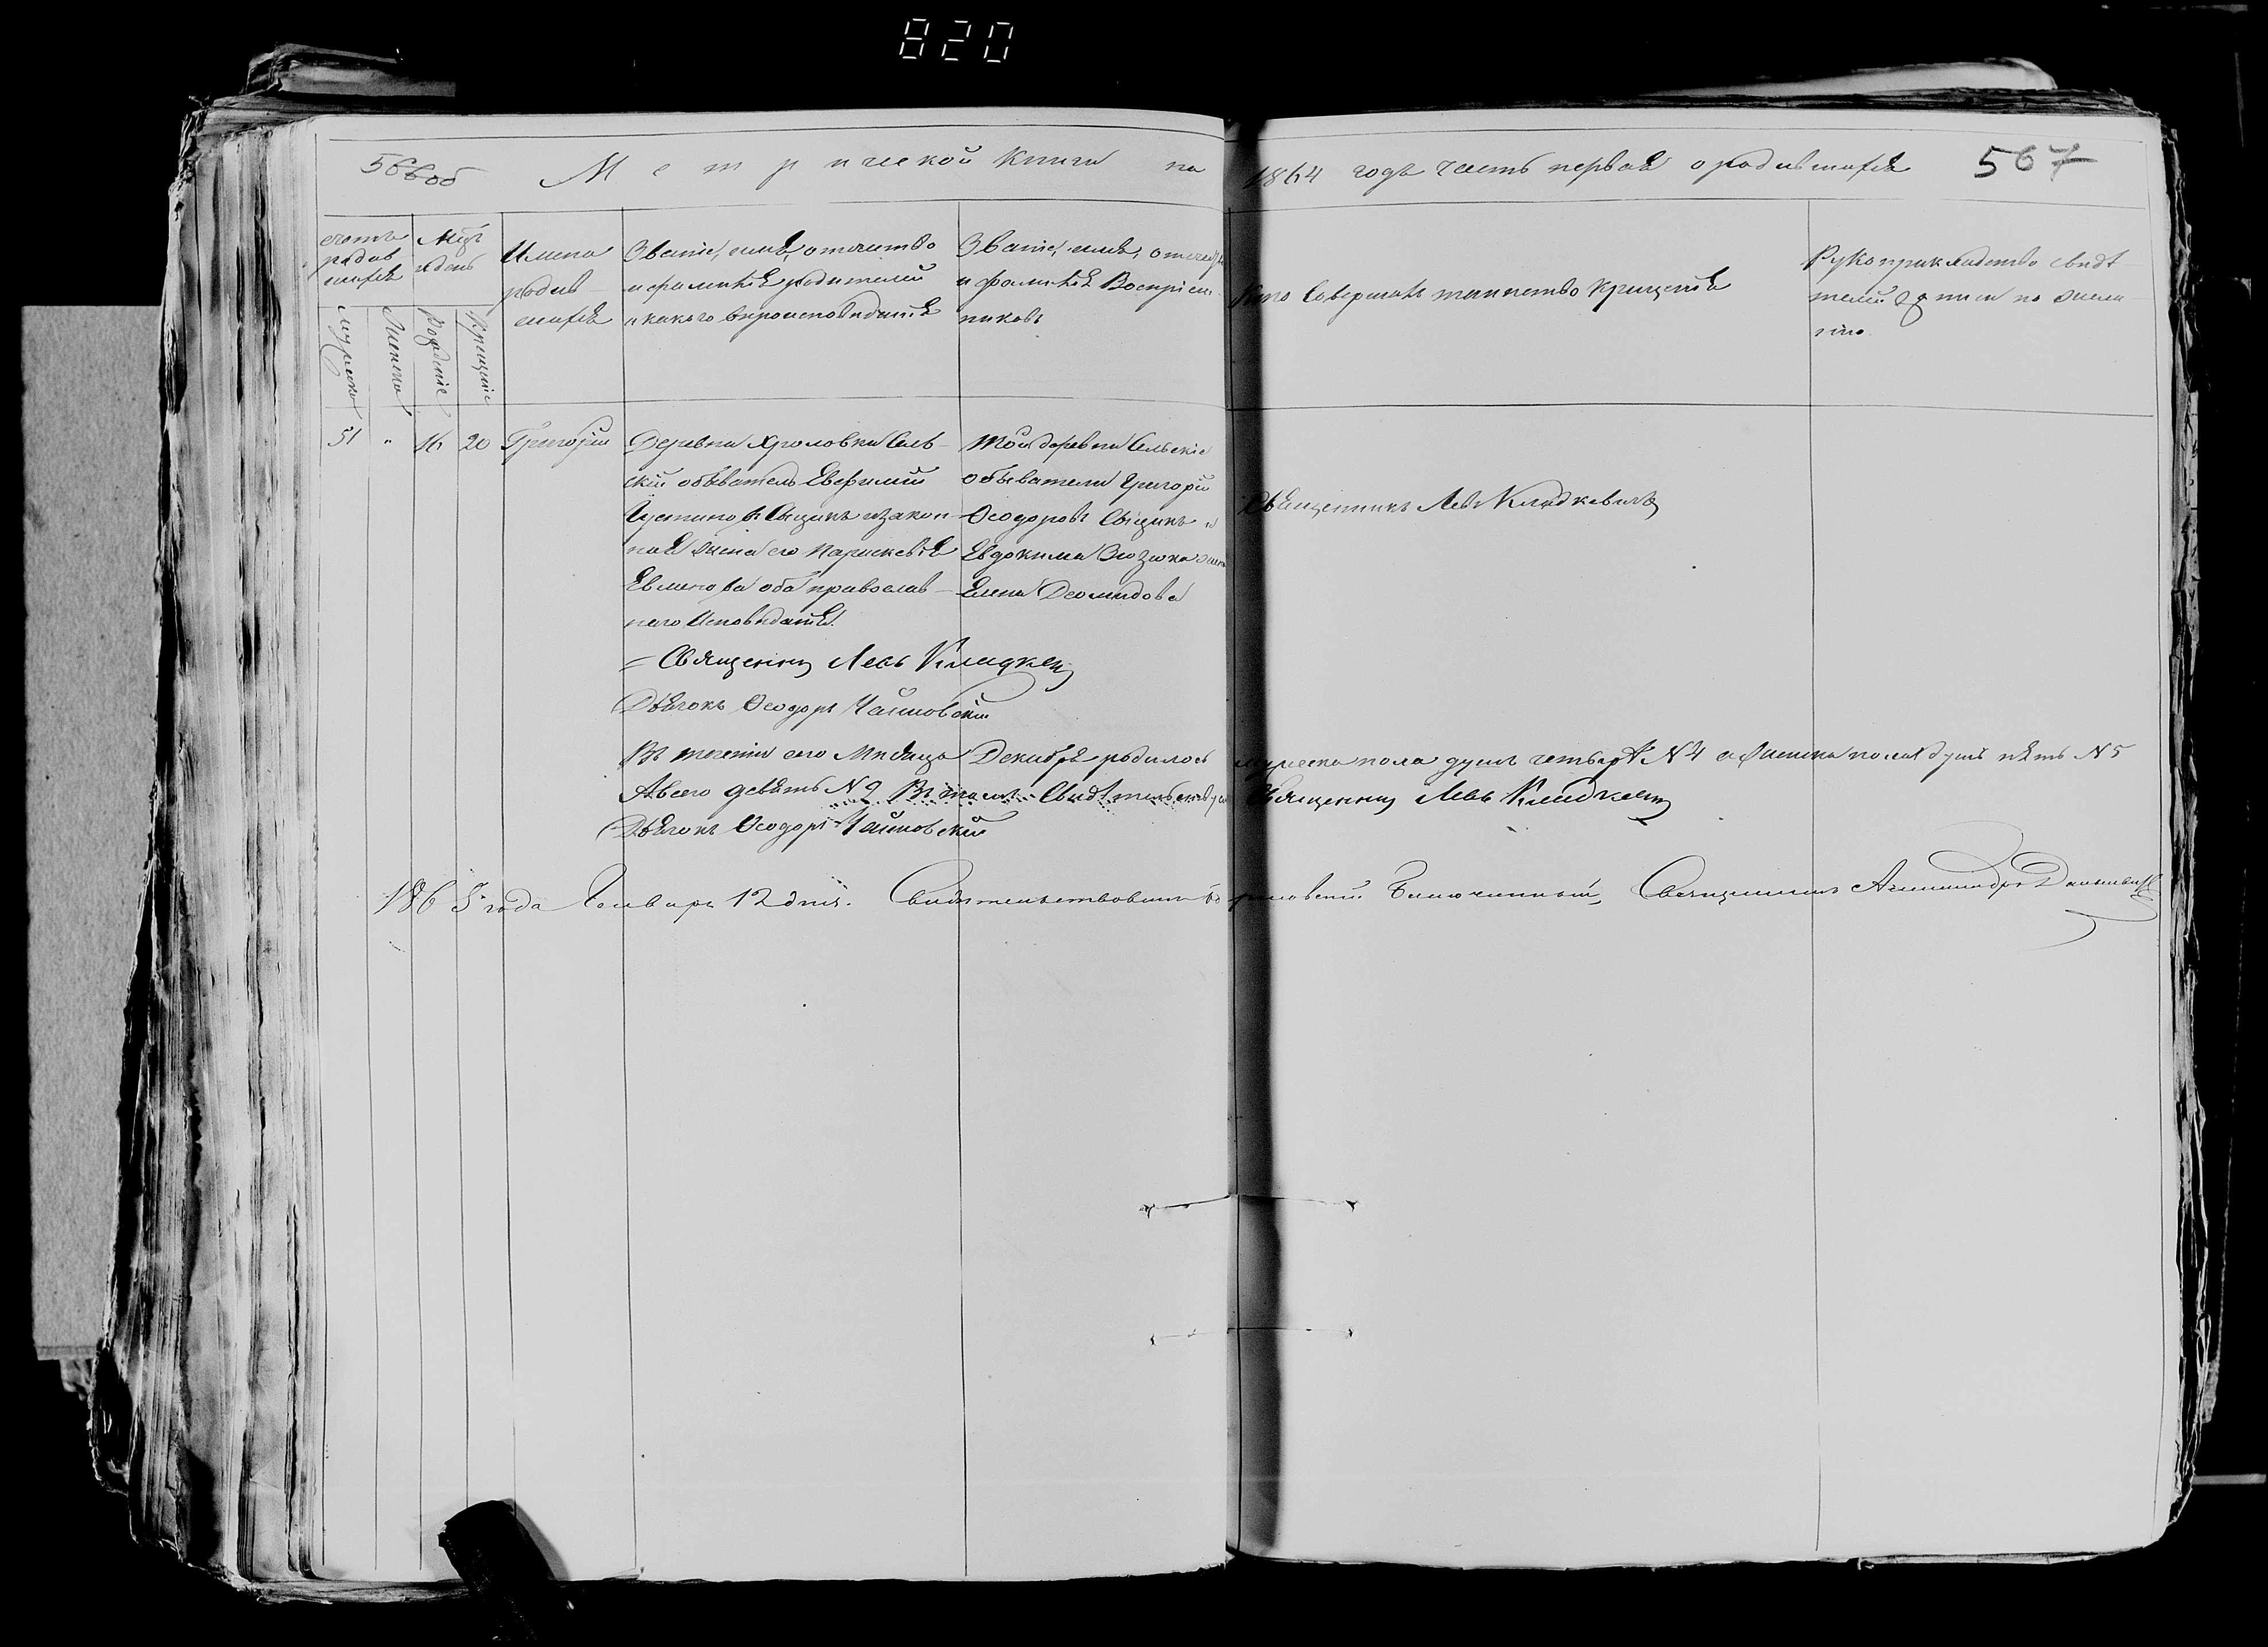 820
566об Метрической Книги на 1864 годъ часть первая о родившихся 567
счетъ родив шихся
Мцъ и день
Имена родив шихся
Званіе, имя, отчество и фамилія родителей и какого вѣроисповѣданія
Званіе, имя, отчество и фамилія Воспріем никовъ
Кто Совершалъ таинство Крещенія
Рукоприкладство свидѣ телей записи по жела нію
Мужеска
Женска
Рожденіе
Крещеніе
51 " 16 20 Григорій
Деревни Хроловки Сель
скій обыватель Евфимій
Іустиновъ Сыщикъ и закон
ная жена его Параскевія
оба православ
наго Исповѣданія.
Той деревни Сельскіе
обыватели Григорій
Ѳеодоровъ Сыщикъ и
Евдокима жена
Елена Деомидова
Священникъ Левъ Кладкевичъ
Священникъ Левъ Кладкевичъ
Дьячокъ Ѳеодоръ Чайковскій
Въ теченіи сего Мѣсяца Декабря родилось мужеска пола душъ четыре N 4 а женска пола душъ пять N 5
А всего девять N 9 Въ томъ Свидѣтельствуемъ Священникъ Левъ Кладкевичъ
Дьячокъ Ѳеодоръ Чайковскій
1865 года Генваря 12 дня. Свидѣтельствовалъ Благочинный, Священникъ Александръ